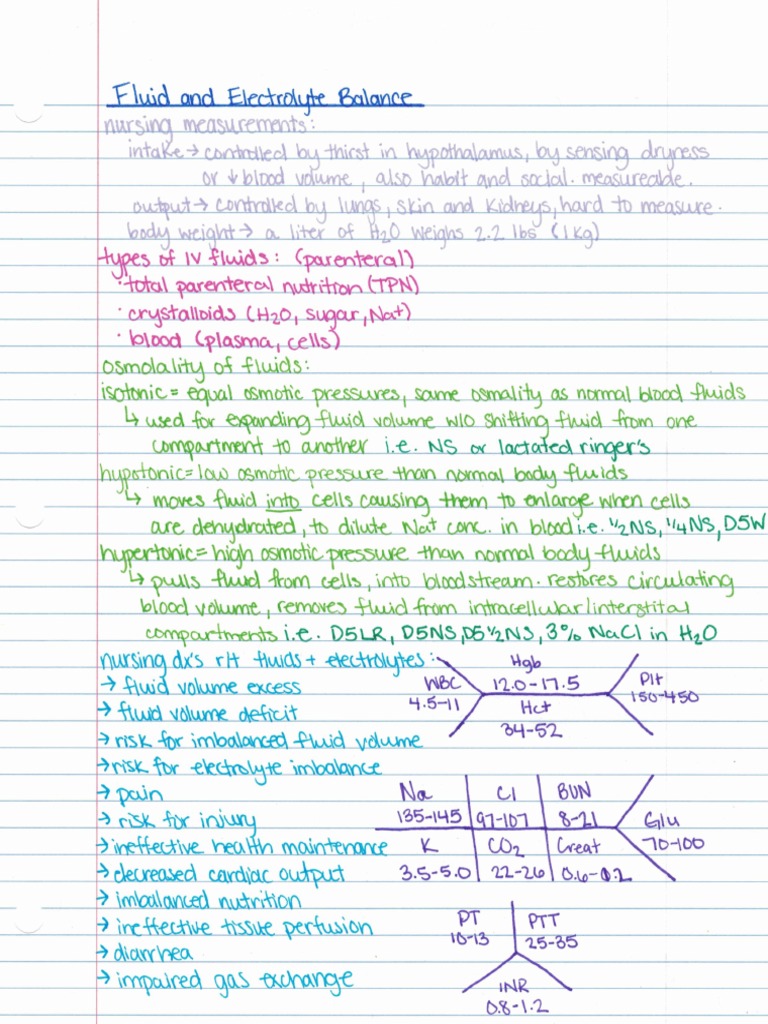 Fluid and Electrolyte Balance
nursing measurements:
intake → controlled by thirst in hypothalamus, by sensing dryness
or ↓ blood volume, also habit and social. measureable.
output → controlled by lungs, skin and kidneys, hard to measure.
body weight → a liter of H₂O weighs 2.2 lbs (1 kg)
types of IV fluids: (parenteral)
· total parenteral nutrition (TPN)
· crystalloids (H₂O, sugar, Na+)
· blood (plasma, cells)
osmolality of fluids:
isotonic = equal osmotic pressures, same osmality as normal blood fluids
↳ used for expanding fluid volume w/o shifting fluid from one
compartment to another i.e. NS or lactated ringer's
hypotonic = low osmotic pressure than normal body fluids
↳ moves fluid into cells causing them to enlarge when cells
are dehydrated, to dilute Na+ conc. in blood i.e. ½NS, ¼NS, D5W
hypertonic = high osmotic pressure than normal body fluids
↳ pulls fluid from cells, into bloodstream. restores circulating
blood volume, removes fluid from intracellular/interstital
compartments i.e. D5LR, D5NS, D5½NS, 3% NaCl in H₂O
nursing dx's r/t fluids + electrolytes:
→ fluid volume excess
→ fluid volume deficit
→ risk for imbalanced fluid volume
→ risk for electrolyte imbalance
→ pain
→ risk for injury
→ ineffective health maintenance
→ decreased cardiac output
→ imbalanced nutrition
→ ineffective tissue perfusion
→ diarrhea
→ impaired gas exchange
WBC
4.5-11
Hgb
12.0-17.5
Hct
34-52
Plt
150-450
Na
135-145
Cl
97-107
BUN
8-21
K
3.5-5.0
CO₂
22-26
Creat
Glu
70-100
PT
10-13
PTT
25-35
INR
0.8-1.2